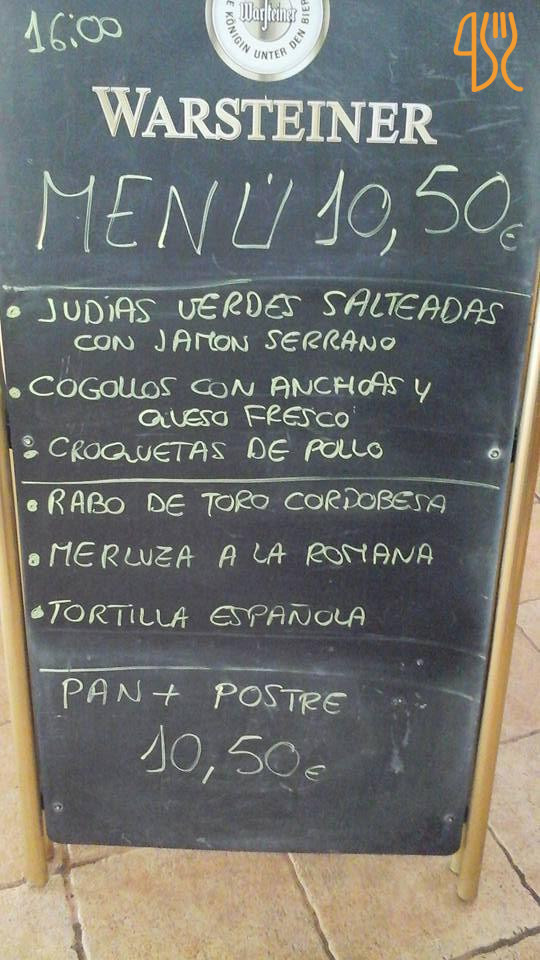 16:00
Warsteiner
E KÖNIGIN UNTER DEN BIER
WARSTEINER
MENÚ 10,50€
• JUDÍAS VERDES SALTEADAS
CON JAMON SERRANO
• COGOLLOS CON ANCHOAS Y
QUESO FRESCO
• CROQUETAS DE POLLO
• RABO DE TORO CORDOBESA
• MERLUZA A LA ROMANA
• TORTILLA ESPAÑOLA
PAN + POSTRE
10,50€